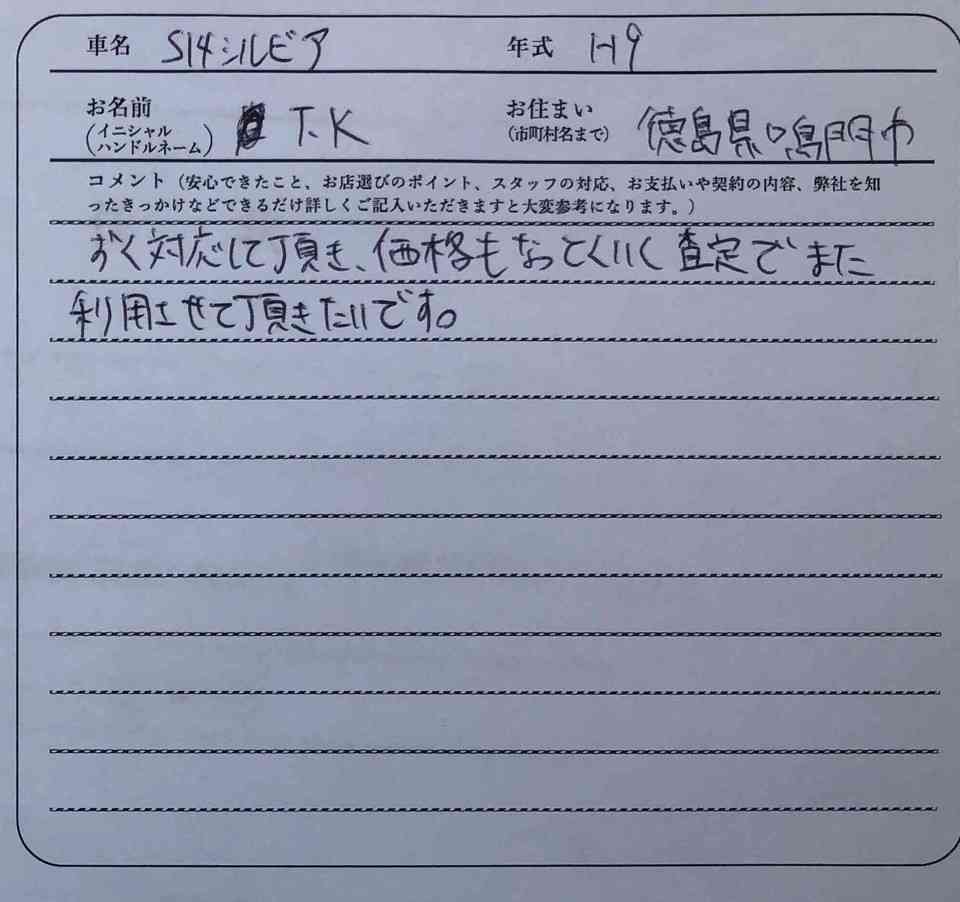 車名 S14シルビア 年式 H9
お名前 T.K お住まい
(イニシャル (市町村名まで) 徳島県鳴門市
ハンドルネーム)
コメント(安心できたこと、お店選びのポイント、スタッフの対応、お支払いや契約の内容、弊社を知
ったきっかけなどできるだけ詳しくご記入いただきますと大変参考になります。)
対応して頂き、価格もなっとくいく査定でまた
利用させて頂きたいです。